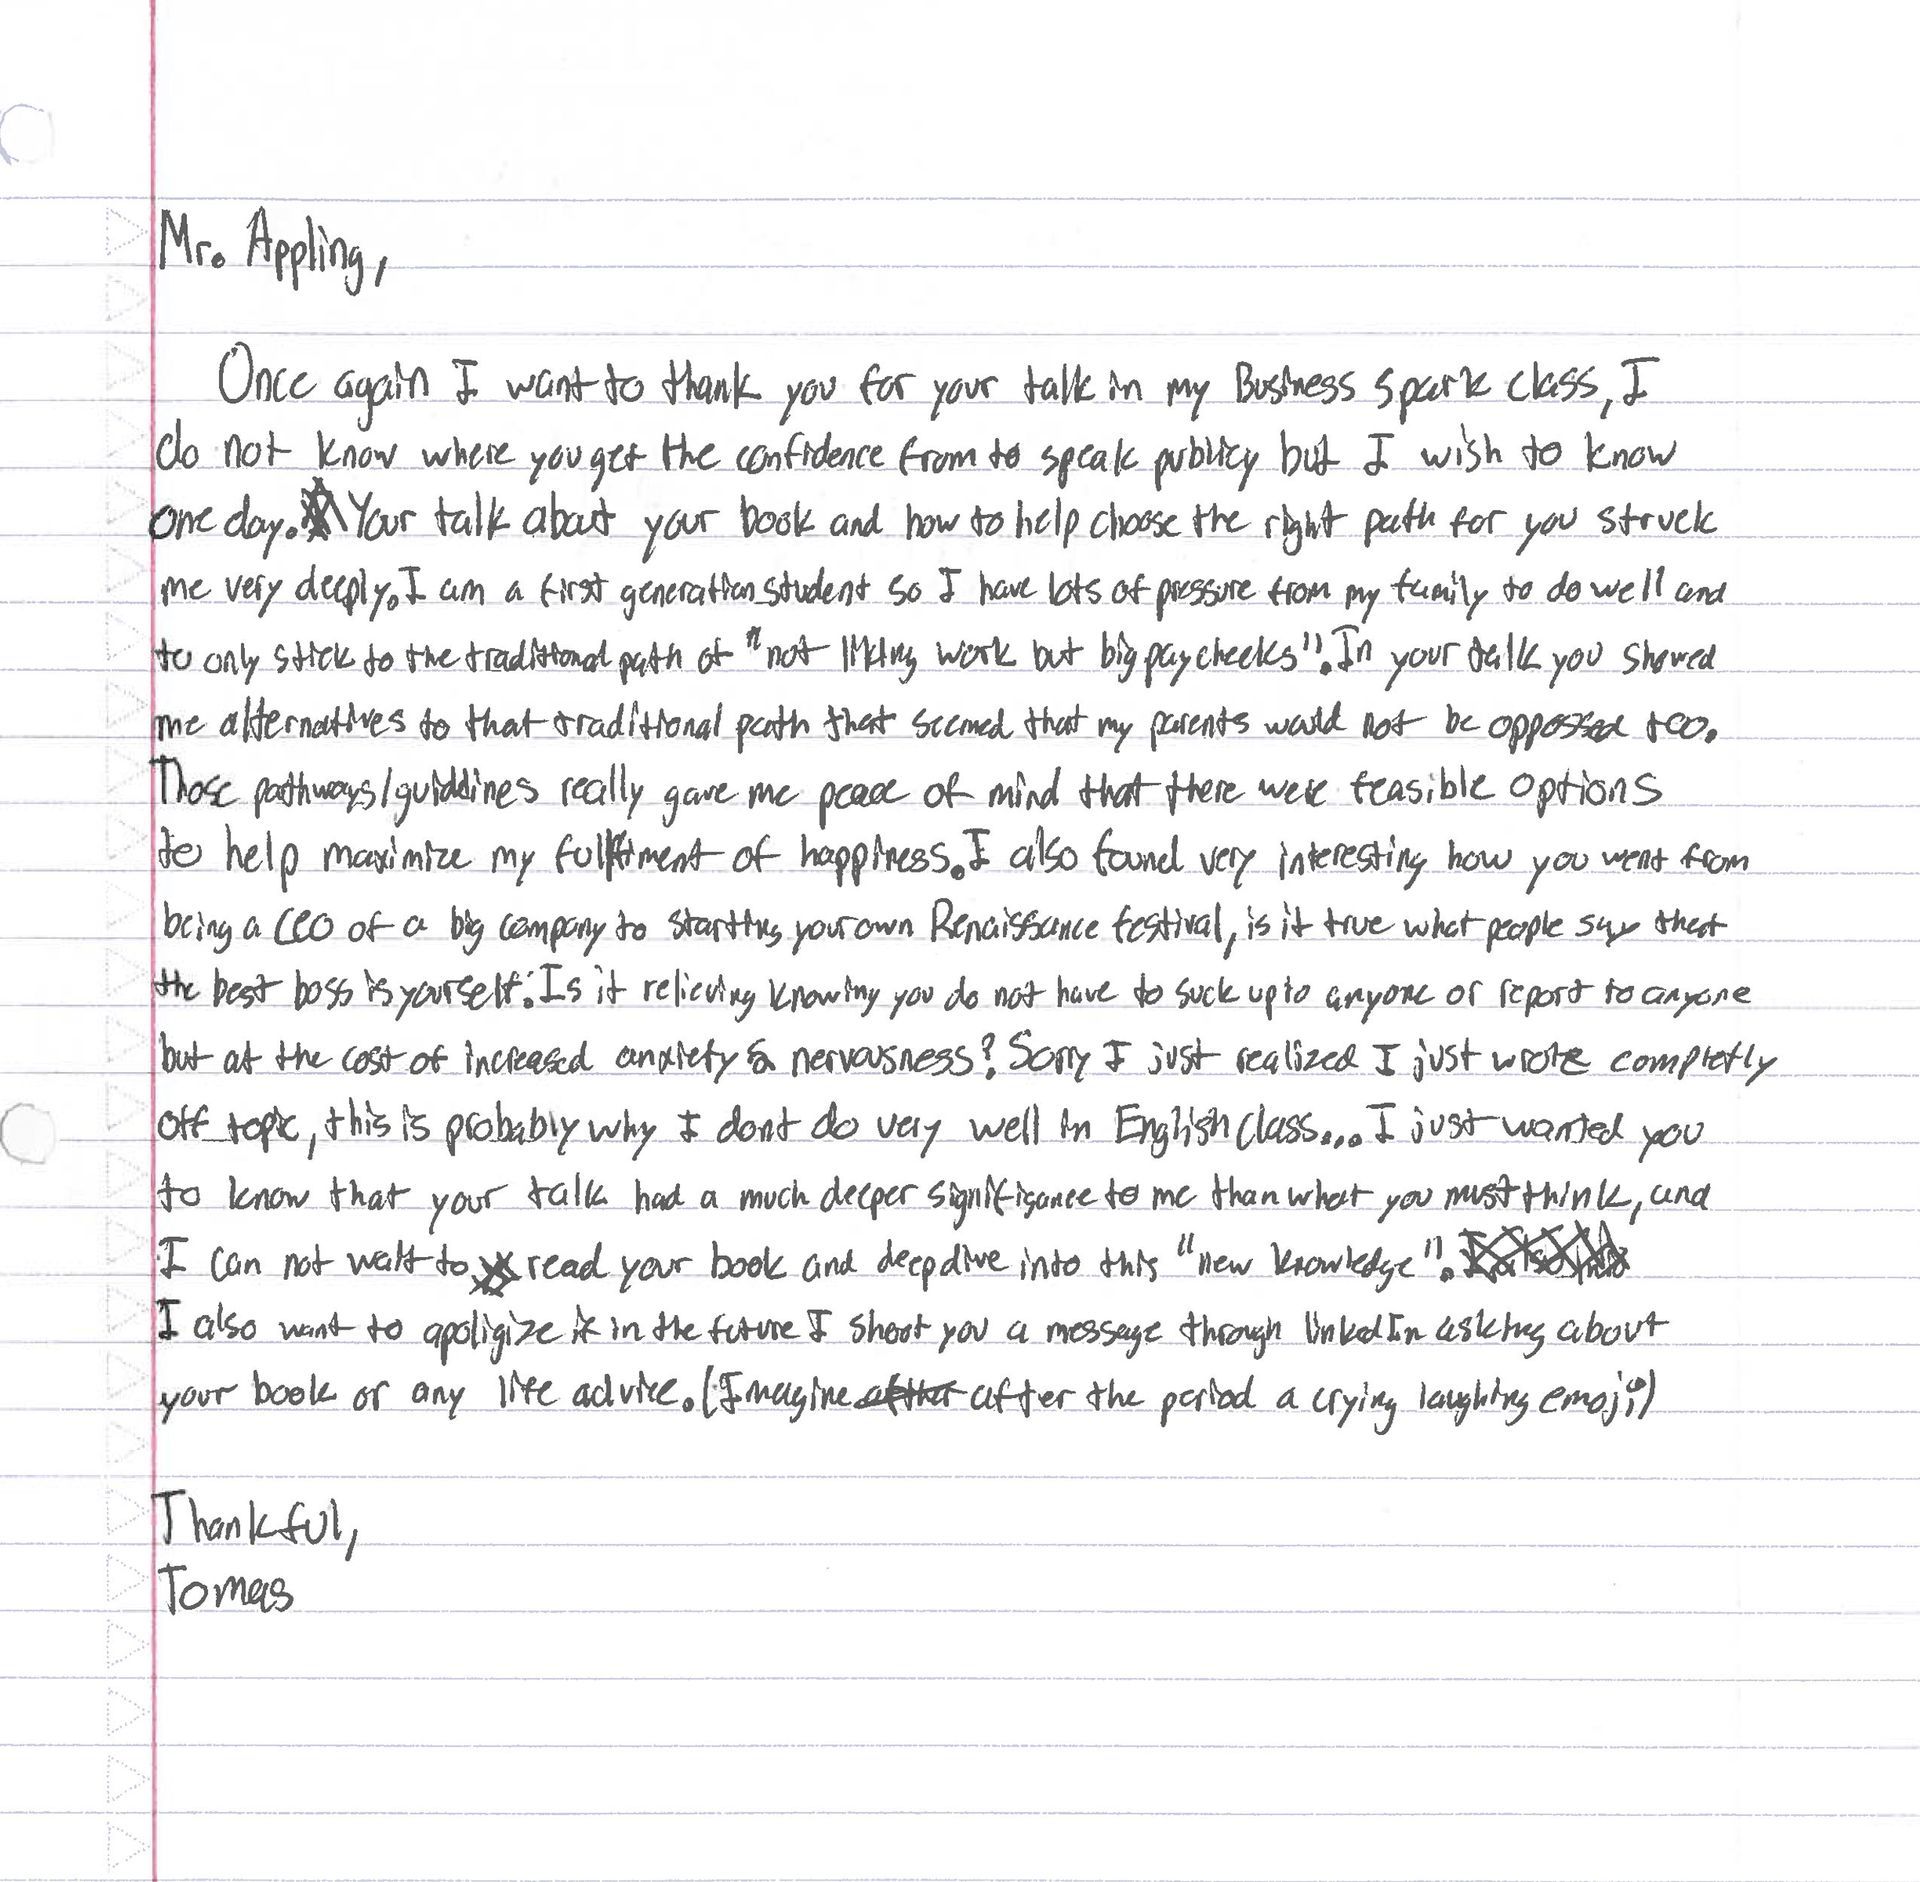 Mr. Appling,
Once again I want to thank you for your talk in my Business spark class, I
do not know where you get the confidence from to speak publicy but I wish to know
one day. Your talk about your book and how to help choose the right path for you struck
me very deeply. I am a first generation student so I have lots of pressure from my family to do well and
to only stick to the traditional path of "not liking work but big paychecks". In your talk you showed
me alternatives to that traditional path that seemed that my parents would not be oppossed too.
Those pathways/guidelines really gave me peace of mind that there were feasible options
to help maximize my fulfilment of happiness. I also found very interesting how you went from
being a CEO of a big company to starting your own Renaissance festival, is it true what people say that
the best boss is yourself. Is it relieving knowing you do not have to suck up to anyone or report to anyone
but at the cost of increased anxiety & nervousness? Sorry I just realized I just wrote completly
off topic, this is probably why I dont do very well in English class... I just wanted you
to know that your talk had a much deeper signifigance to me than what you must think, and
I can not wait to read your book and deepdive into this "new knowledge".
I also want to apoligize if in the future I shoot you a message through linkedIn asking about
your book or any life advice. (Imagine after the period a crying laughing emoji)
Thankful,
Tomas